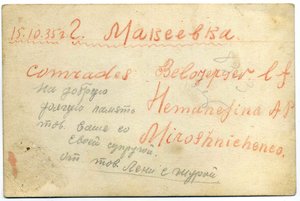 15.10.35 г. Макеевка.
comrades Belozerjev l f.
Hemanefina A P
Miroshnichenco,
На добрую
долгую память
тов. Ваше со
своей супругой.
От тов. Лени с Шурой